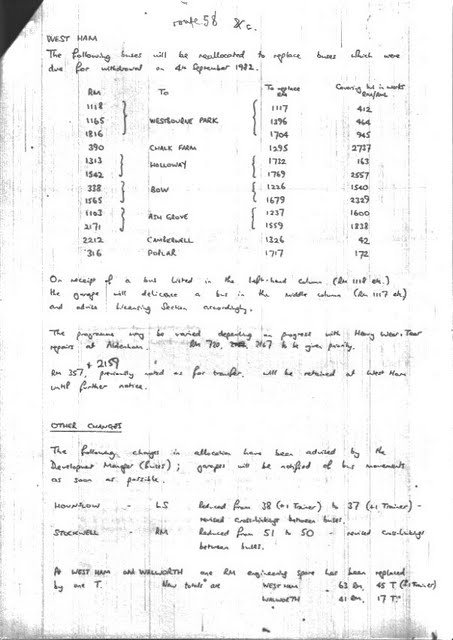 route 58 &c.
WEST HAM
The following buses will be reallocated to replace buses which were
due for withdrawal on 4th September 1982.
RM TO To replace RM Covering bus in works RM/RML
1118 1117 412
1165 WESTBOURNE PARK 1396 464
1816 1704 945
390 CHALK FARM 1295 2737
1313 HOLLOWAY 1732 163
1542 1769 2557
338 BOW 1226 1540
1565 1679 2329
1103 ASH GROVE 1237 1600
2171 1559 1838
2212 CAMBERWELL 1326 42
316 POPLAR 1717 172
On receipt of a bus listed in the left-hand column (RM 1118 etc.)
the garage will delicence a bus in the middle column (RM 1117 etc)
and advise Licensing Section accordingly.
The programme may be varied depending on progress with Heavy Wear & Tear
repairs at Aldenham. RM 720, 2167 to be given priority.
& 2159
RM 357, previously noted as for transfer, will be retained at West Ham
until further notice.
OTHER CHANGES
The following changes in allocation have been advised by the
Development Manager (Buses); garages will be notified of bus movements
as soon as possible.
HOUNSLOW - LS Reduced from 38 (+1 Trainer) to 37 (+1 Trainer) -
revised cross-linkings between buses.
STOCKWELL - RM Reduced from 51 to 50 - revised cross-linkings
between buses.
At WEST HAM and WALWORTH one RM engineering spare has been replaced
by one T. New totals are WEST HAM 63 RM 45 T (+1 Trainer)
WALWORTH 41 RM, 17 T.